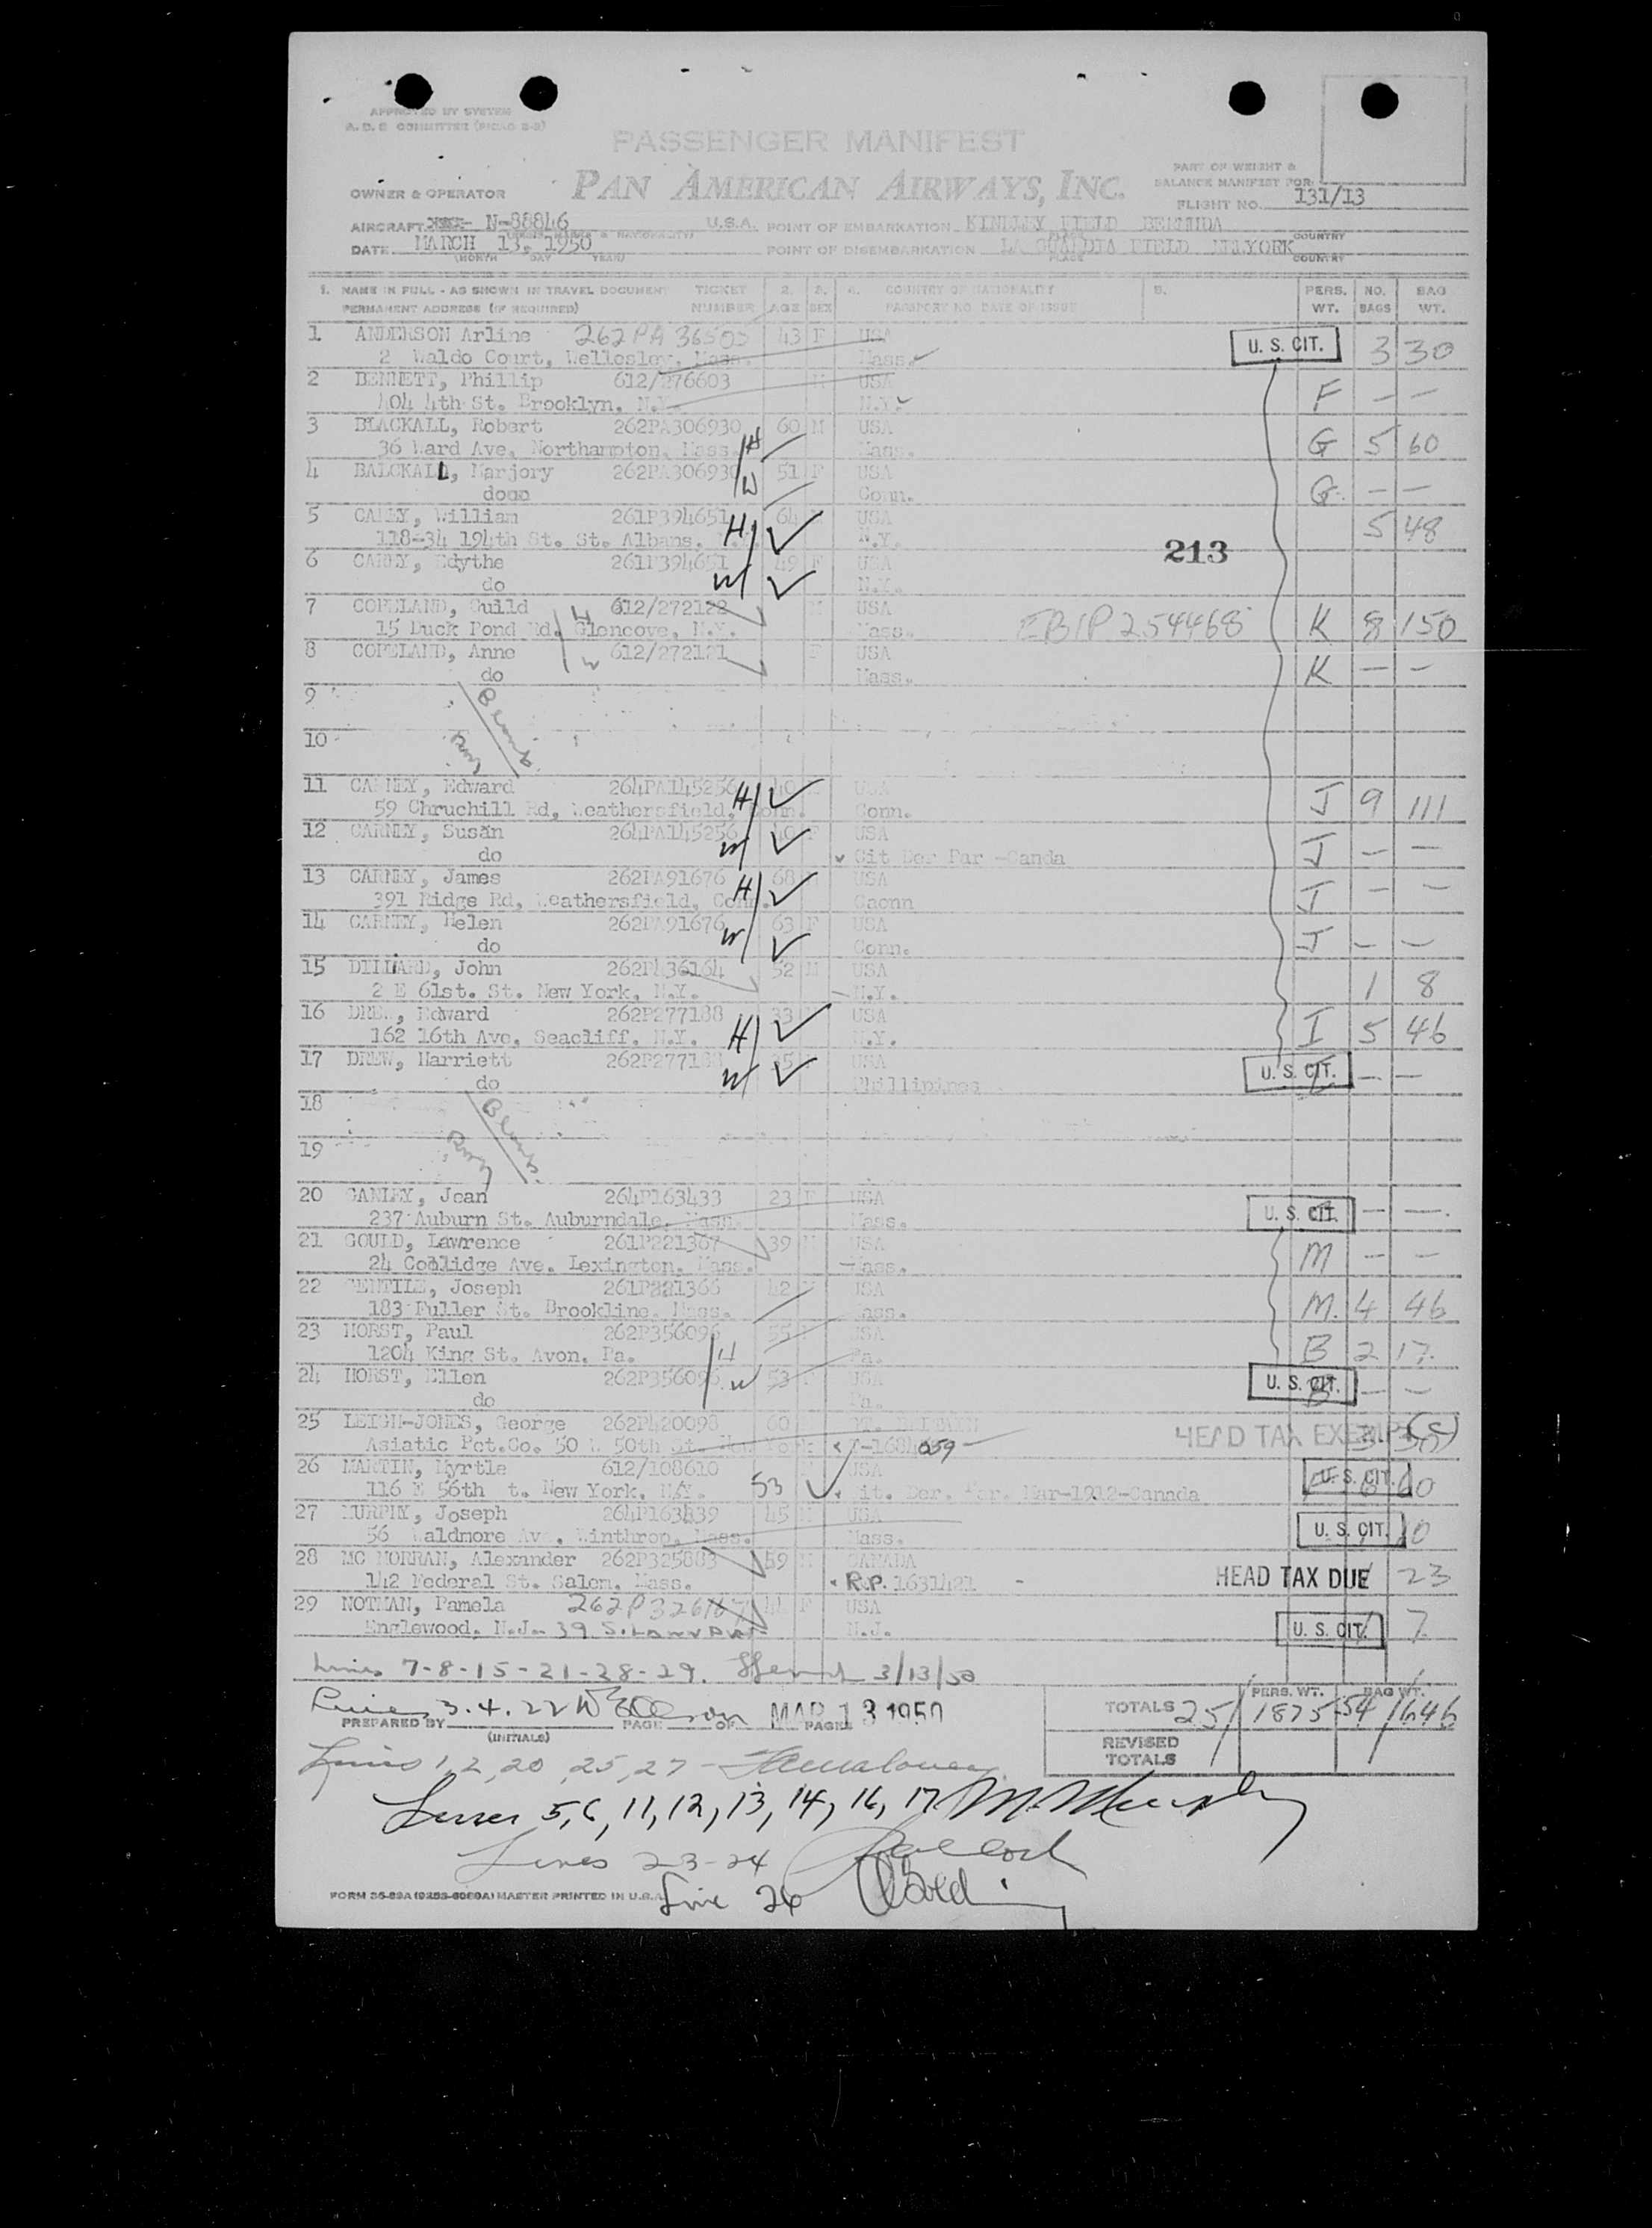 APPROVED BY SYSTEM
A.D.C COMMITTEE
PASSENGER MANIFEST
PAN AMERICAN AIRWAYS, INC.
PART OF WEIGHT &
BALANCE MANIFEST FOR
FLIGHT NO. 131/13
OWNER & OPERATOR
AIRCRAFT N-88846 U.S.A. POINT OF EMBARKATION KINDLEY FIELD BERMUDA
DATE MARCH 13, 1950 POINT OF DISEMBARKATION LA GUARDIA FIELD NEWYORK
(MONTH DAY YEAR) PLACE COUNTRY
1. NAME IN FULL - AS SHOWN IN TRAVEL DOCUMENT TICKET 2. 3. 4. COUNTRY OF NATIONALITY 5. PERS. NO. BAG
PERMANENT ADDRESS (IF REQUIRED) NUMBER AGE SEX PASSPORT NO. DATE OF ISSUE WT. BAGS WT.
1 ANDERSON Arline 43 F USA U. S. CIT. 3 30
2 Waldo Court, Wellesley, Mass. Mass.
2 BENNETT, Phillip 612/276603 M USA
404 4th St. Brooklyn, N.Y. N.Y. F — —
3 BLACKALL, Robert 262PA306930 60 M USA
36 Ward Ave, Northampton, Mass. H Mass. G 5 60
4 BALCKALL, Marjory 262PA306930 51 F USA
W Conn. G — —
5 CAREY, William 261P394651 64 USA 5 48
118-34 194th St. St. Albans. H N.Y.
213
6 CAREY, Edythe 261P394651 49 F USA
do W N.Y.
7 COPELAND, Guild 612/272122 M USA
15 Duck Pond Rd. Glencove, N.Y. H Mass. EBIP 254468 K 8 150
8 COPELAND, Anne 612/272121 F USA
do W Mass. K — —
9 Blank
10
11 CARNEY, Edward 264PA145256 40 USA
59 Chruchill Rd, Weathersfield, Conn. H Conn. J 9 111
12 CARNEY, Susan 264PA145256 40 F USA
do W Cit Der Par -Canda J — —
13 CARNEY, James 262PA91676 68 M USA
391 Ridge Rd, Weathersfield, Conn. H Caonn J — —
14 CARNEY, Helen 262PA91676 63 F USA
do W Conn. J — —
15 DILLARD, John 52 M USA
2 E 61st. St. New York, N.Y. N.Y. 1 8
16 DREW, Edward 262P277188 33 USA
162 16th Ave, Seacliff, N.Y. H N.Y. I 5 46
17 DREW, Harriett 35 USA
do W Phillipines U. S. CIT. — —
18 Blank
19
20 CANLEY, Jean 264P163433 23 F USA
237 Auburn St. Auburndale, Mass. Mass. U. S. CIT. — —
21 GOULD, Lawrence 261P221367 39 M USA
24 Coolidge Ave. Lexington, Mass. Mass. M — —
22 GENTILE, Joseph 261P221366 42 M USA
183 Fuller St. Brookline, Mass. Mass. M. 4 46
23 HORST, Paul 262P356096 55 USA
1204 King St. Avon, Pa. H Pa. B 2 17
24 HORST, Ellen 262P356096 W 53 F USA
do Pa. U. S. CIT. — —
25 LEIGH-JONES, George 262P420098 60 GT. BRITAIN
Asiatic Pet.Co. 50 W 50th St. New York HEAD TAX EXEMPT
26 MARTIN, Myrtle 612/108610 F USA
116 E 56th St. New York, N.Y. 53 Cit. Der. Mar. Mar-1912-Canada U. S. CIT.
27 MURPHY, Joseph 264P163439 45 M USA
56 Waldmore Ave, Winthrop, Mass. Mass. U. S. CIT.
28 MC MORRAN, Alexander 262P325883 59 M CANADA
142 Federal St. Salem, Mass. R.P. 1631421 HEAD TAX DUE 23
29 NOTMAN, Pamela 44 F USA
Englewood, N.J. N.J. U. S. CIT. 7
Lines 7-8-15-21-28-29. 3/13/50
Lines 3.4.22
MAR 13 1950
PREPARED BY PAGE OF PAGES
(INITIALS)
PERS. WT. BAG WT.
TOTALS 25 1875 54 646
REVISED
TOTALS
Lines 1,2,20,25,27 -
Lines 5,6,11,12,13,14,16,17
Lines 23-24
Line 26